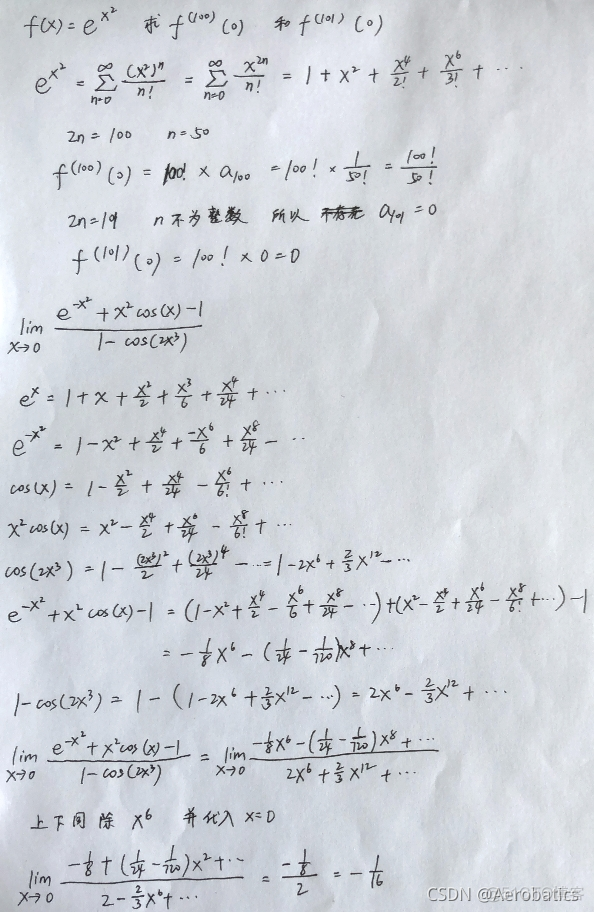 f(x) = e^{x^2} 求 f^{(100)}(0) 和 f^{(101)}(0)
e^{x^2} = \sum_{n=0}^{\infty} \frac{(x^2)^n}{n!} = \sum_{n=0}^{\infty} \frac{x^{2n}}{n!} = 1 + x^2 + \frac{x^4}{2!} + \frac{x^6}{3!} + ⋯
2n = 100 n = 50
f^{(100)}(0) = 100! × a_{100} = 100! × \frac{1}{50!} = \frac{100!}{50!}
n 不为整数 所以 a_{101} = 0
f^{(101)}(0) = 100! × 0 = 0
\lim_{x→0} \frac{e^{-x^2} + x^2 cos(x) - 1}{1 - cos(2x^3)}
e^x = 1 + x + \frac{x^2}{2} + \frac{x^3}{6} + \frac{x^4}{24} + ⋯
e^{-x^2} = 1 - x^2 + \frac{x^4}{2} + \frac{-x^6}{6} + \frac{x^8}{24} - ⋯
cos(x) = 1 - \frac{x^2}{2} + \frac{x^4}{24} - \frac{x^6}{6!} + ⋯
x^2 cos(x) = x^2 - \frac{x^4}{2} + \frac{x^6}{24} - \frac{x^8}{6!} + ⋯
cos(2x^3) = 1 - \frac{(2x^3)^2}{2} + \frac{(2x^3)^4}{24} - ⋯ = 1 - 2x^6 + \frac{2}{3}x^{12} - ⋯
e^{-x^2} + x^2 cos(x) - 1 = (1 - x^2 + \frac{x^4}{2} - \frac{x^6}{6} + \frac{x^8}{24} - ⋯) + (x^2 - \frac{x^4}{2} + \frac{x^6}{24} - \frac{x^8}{6!} + ⋯) - 1
= -\frac{1}{8}x^6 - (\frac{1}{24} - \frac{1}{720})x^8 + ⋯
1 - cos(2x^3) = 1 - (1 - 2x^6 + \frac{2}{3}x^{12} - ⋯) = 2x^6 - \frac{2}{3}x^{12} + ⋯
\lim_{x→0} \frac{e^{-x^2} + x^2 cos(x) - 1}{1 - cos(2x^3)} = \lim_{x→0} \frac{-\frac{1}{8}x^6 - (\frac{1}{24} - \frac{1}{720})x^8 + ⋯}{2x^6 + \frac{2}{3}x^{12} + ⋯}
上下同除 x^6 并代入 x = 0
\lim_{x→0} \frac{-\frac{1}{8} + (\frac{1}{24} - \frac{1}{720})x^2 + ⋯}{2 - \frac{2}{3}x^6 + ⋯} = \frac{-\frac{1}{8}}{2} = -\frac{1}{16}
CSDN @Aerobatics